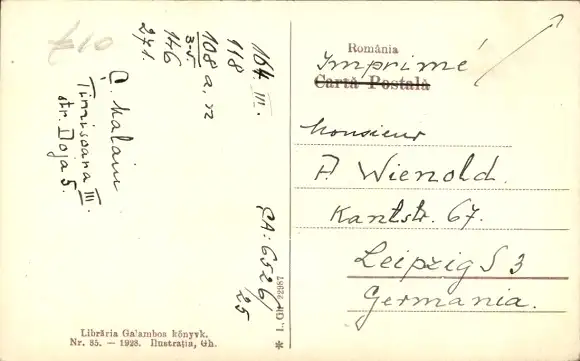 164 III.
118
108 a, n
3-5
146
271.
Timisoara III.
str. Doja 5.
EA: 6526/25
Librăria Galambos könyvk.
Nr. 85. — 1928. Ilustrația, Gh.
* I. Gh 22987
România
Imprimé
Carta Postală
Monsieur
A. Wienold.
Kantstr. 67.
Leipzig S 3
Germania.